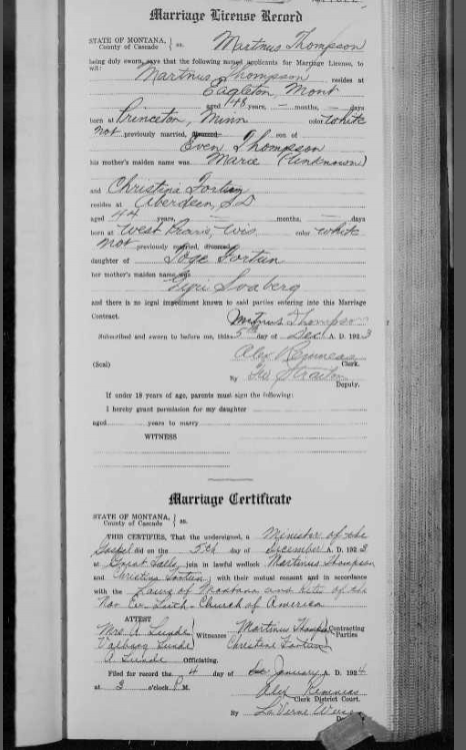 Marriage License Record
STATE OF MONTANA, } ss. Martnus Thompson
County of Cascade
being duly sworn, says that the following named applicants for Marriage License, to
wit: Martnus Thompson resides at
Eagleton, Mont
aged 48 years, — months, — days
born at Princeton, Minn color White
not previously married, divorced son of
Even Thompson
his mother's maiden name was Marie (Unknown)
and Christine Fortun
resides at Aberdeen, S D
aged 44 years, — months, — days
born at West Prairie, Wis. color white
not previously married, divorced
daughter of Toge Fortun
her mother's maiden name was
Soaberg
and there is no legal impediment known to said parties entering into this Marriage
Contract.
Martnus Thompson
Subscribed and sworn to before me, this 5th day of Dec. A. D. 1923
Alex Remneas
(Seal) Clerk.
By Deputy.
If under 18 years of age, parents must sign the following:
I hereby grant permission for my daughter
aged years to marry
WITNESS
Marriage Certificate
STATE OF MONTANA, } ss.
County of Cascade
THIS CERTIFIES, That the undersigned, a Minister of the
Gospel did on the 5th day of December A. D. 1923
at Great Falls, join in lawful wedlock Martinus Thompson
and Christine Fortun, with their mutual consent and in accordance
with the Laws of Montana and Rites of the
Nor. Ev. Luth. Church of America
ATTEST
Mrs. A Lunde } Witnesses Martinus Thompson } Contracting
Valborg Lunde Christine Fortun Parties
A Lunde Officiating.
Filed for record the 4 day of January A. D. 1924
at 3 o'clock P. M.
Alex Remneas
Clerk District Court.
By La Verne